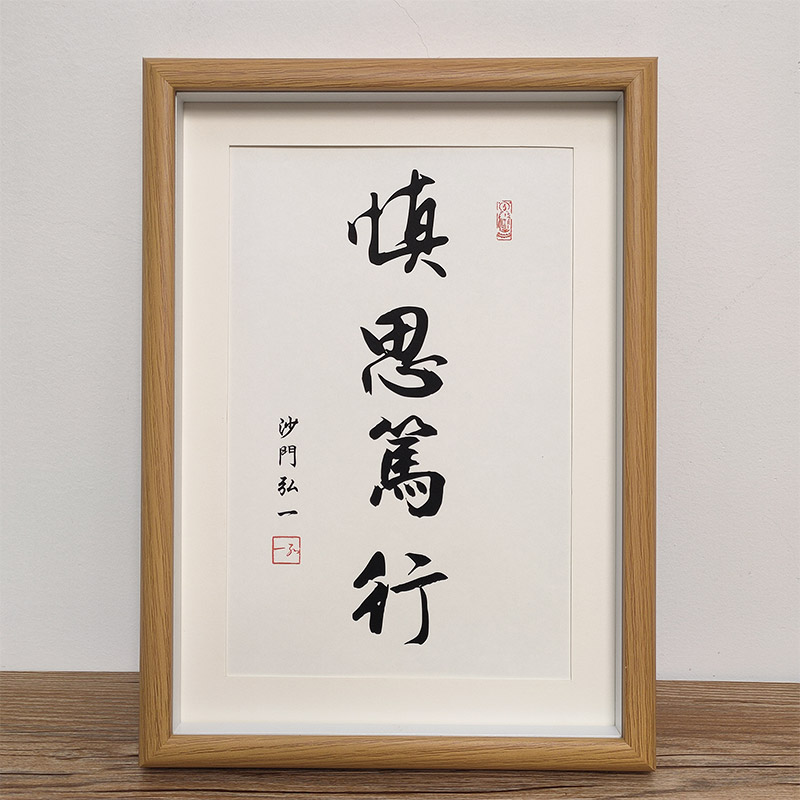 慎思篤行
沙門弘一
弘一